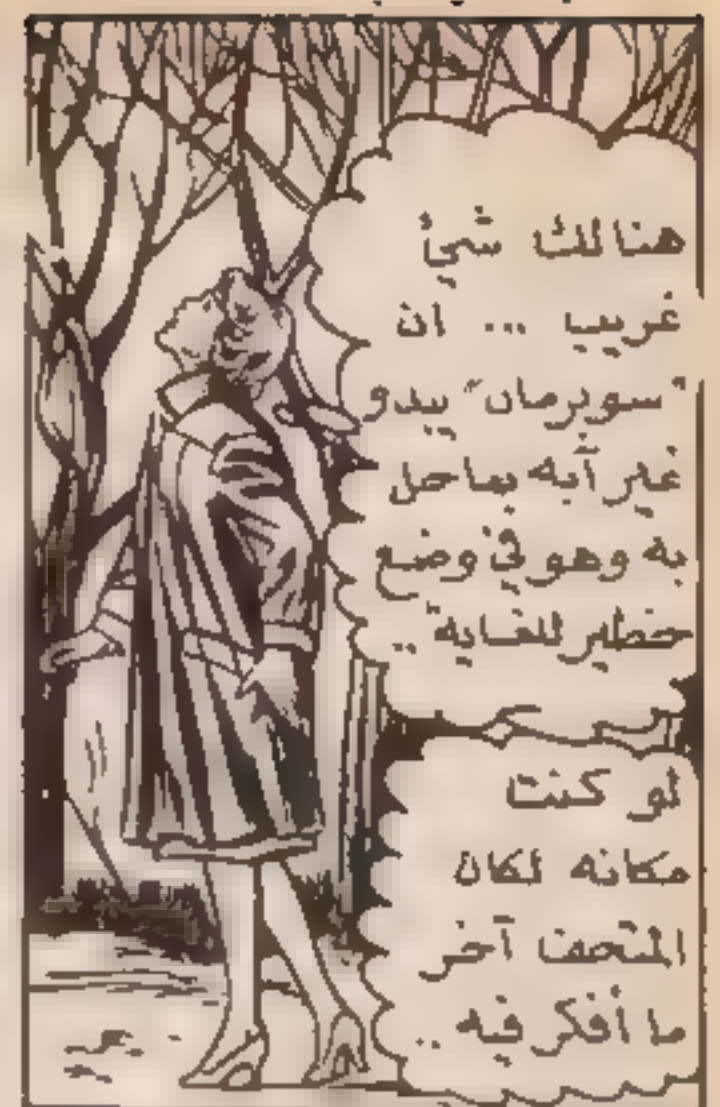 هنالك شيئ
غريب ... ان
"سوبرمان" يبدو
غير آبه بما حل
به وهو في وضع
خطير للغاية ..
لو كنت
مكانه لكان
المتحف آخر
ما أفكر فيه ..